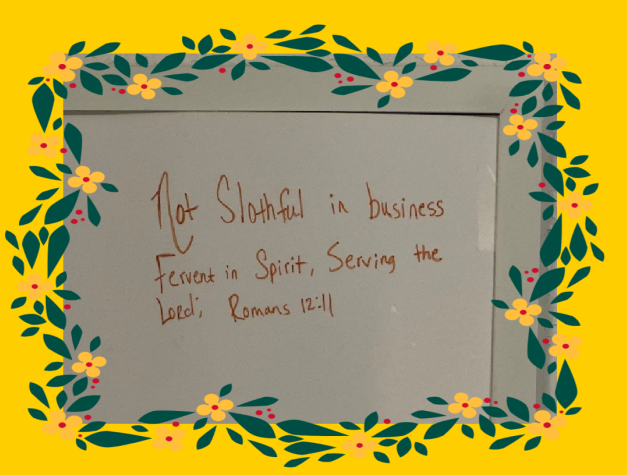 Not Slothful in business
Fervent in Spirit, Serving the
Lord; Romans 12:11